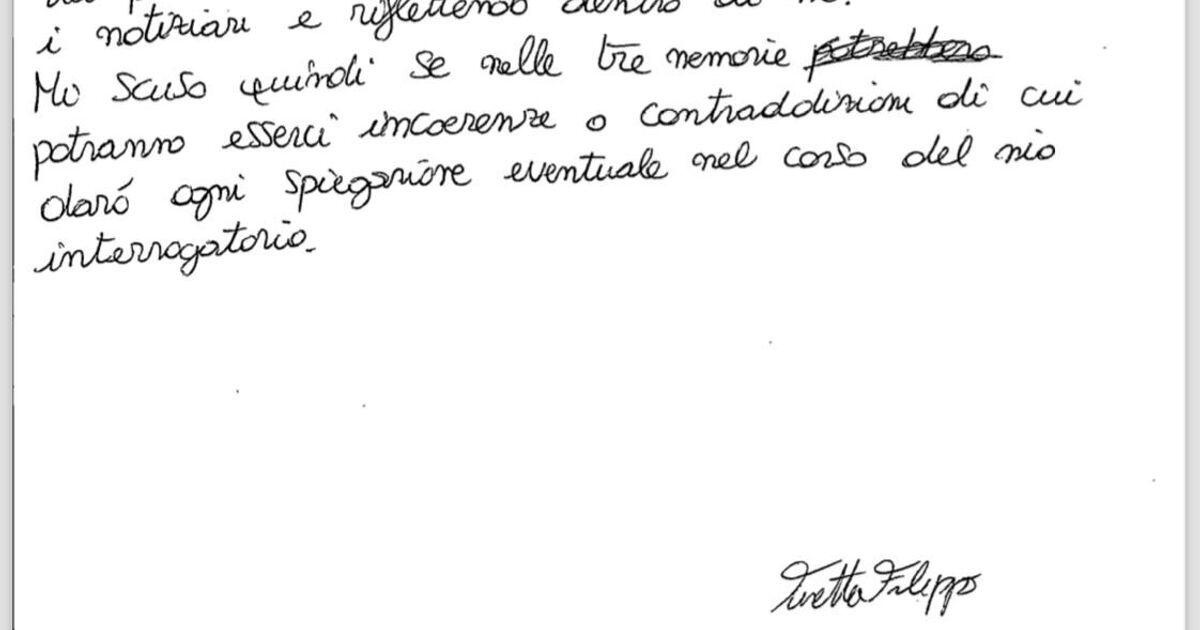 i notiziari e riflettendo dentro di me.
Mi scuso quindi se nelle tre memorie potrebbero
potranno esserci incoerenze o contraddizioni di cui
darò ogni spiegazione eventuale nel corso del mio
interrogatorio.
Turetta Filippo